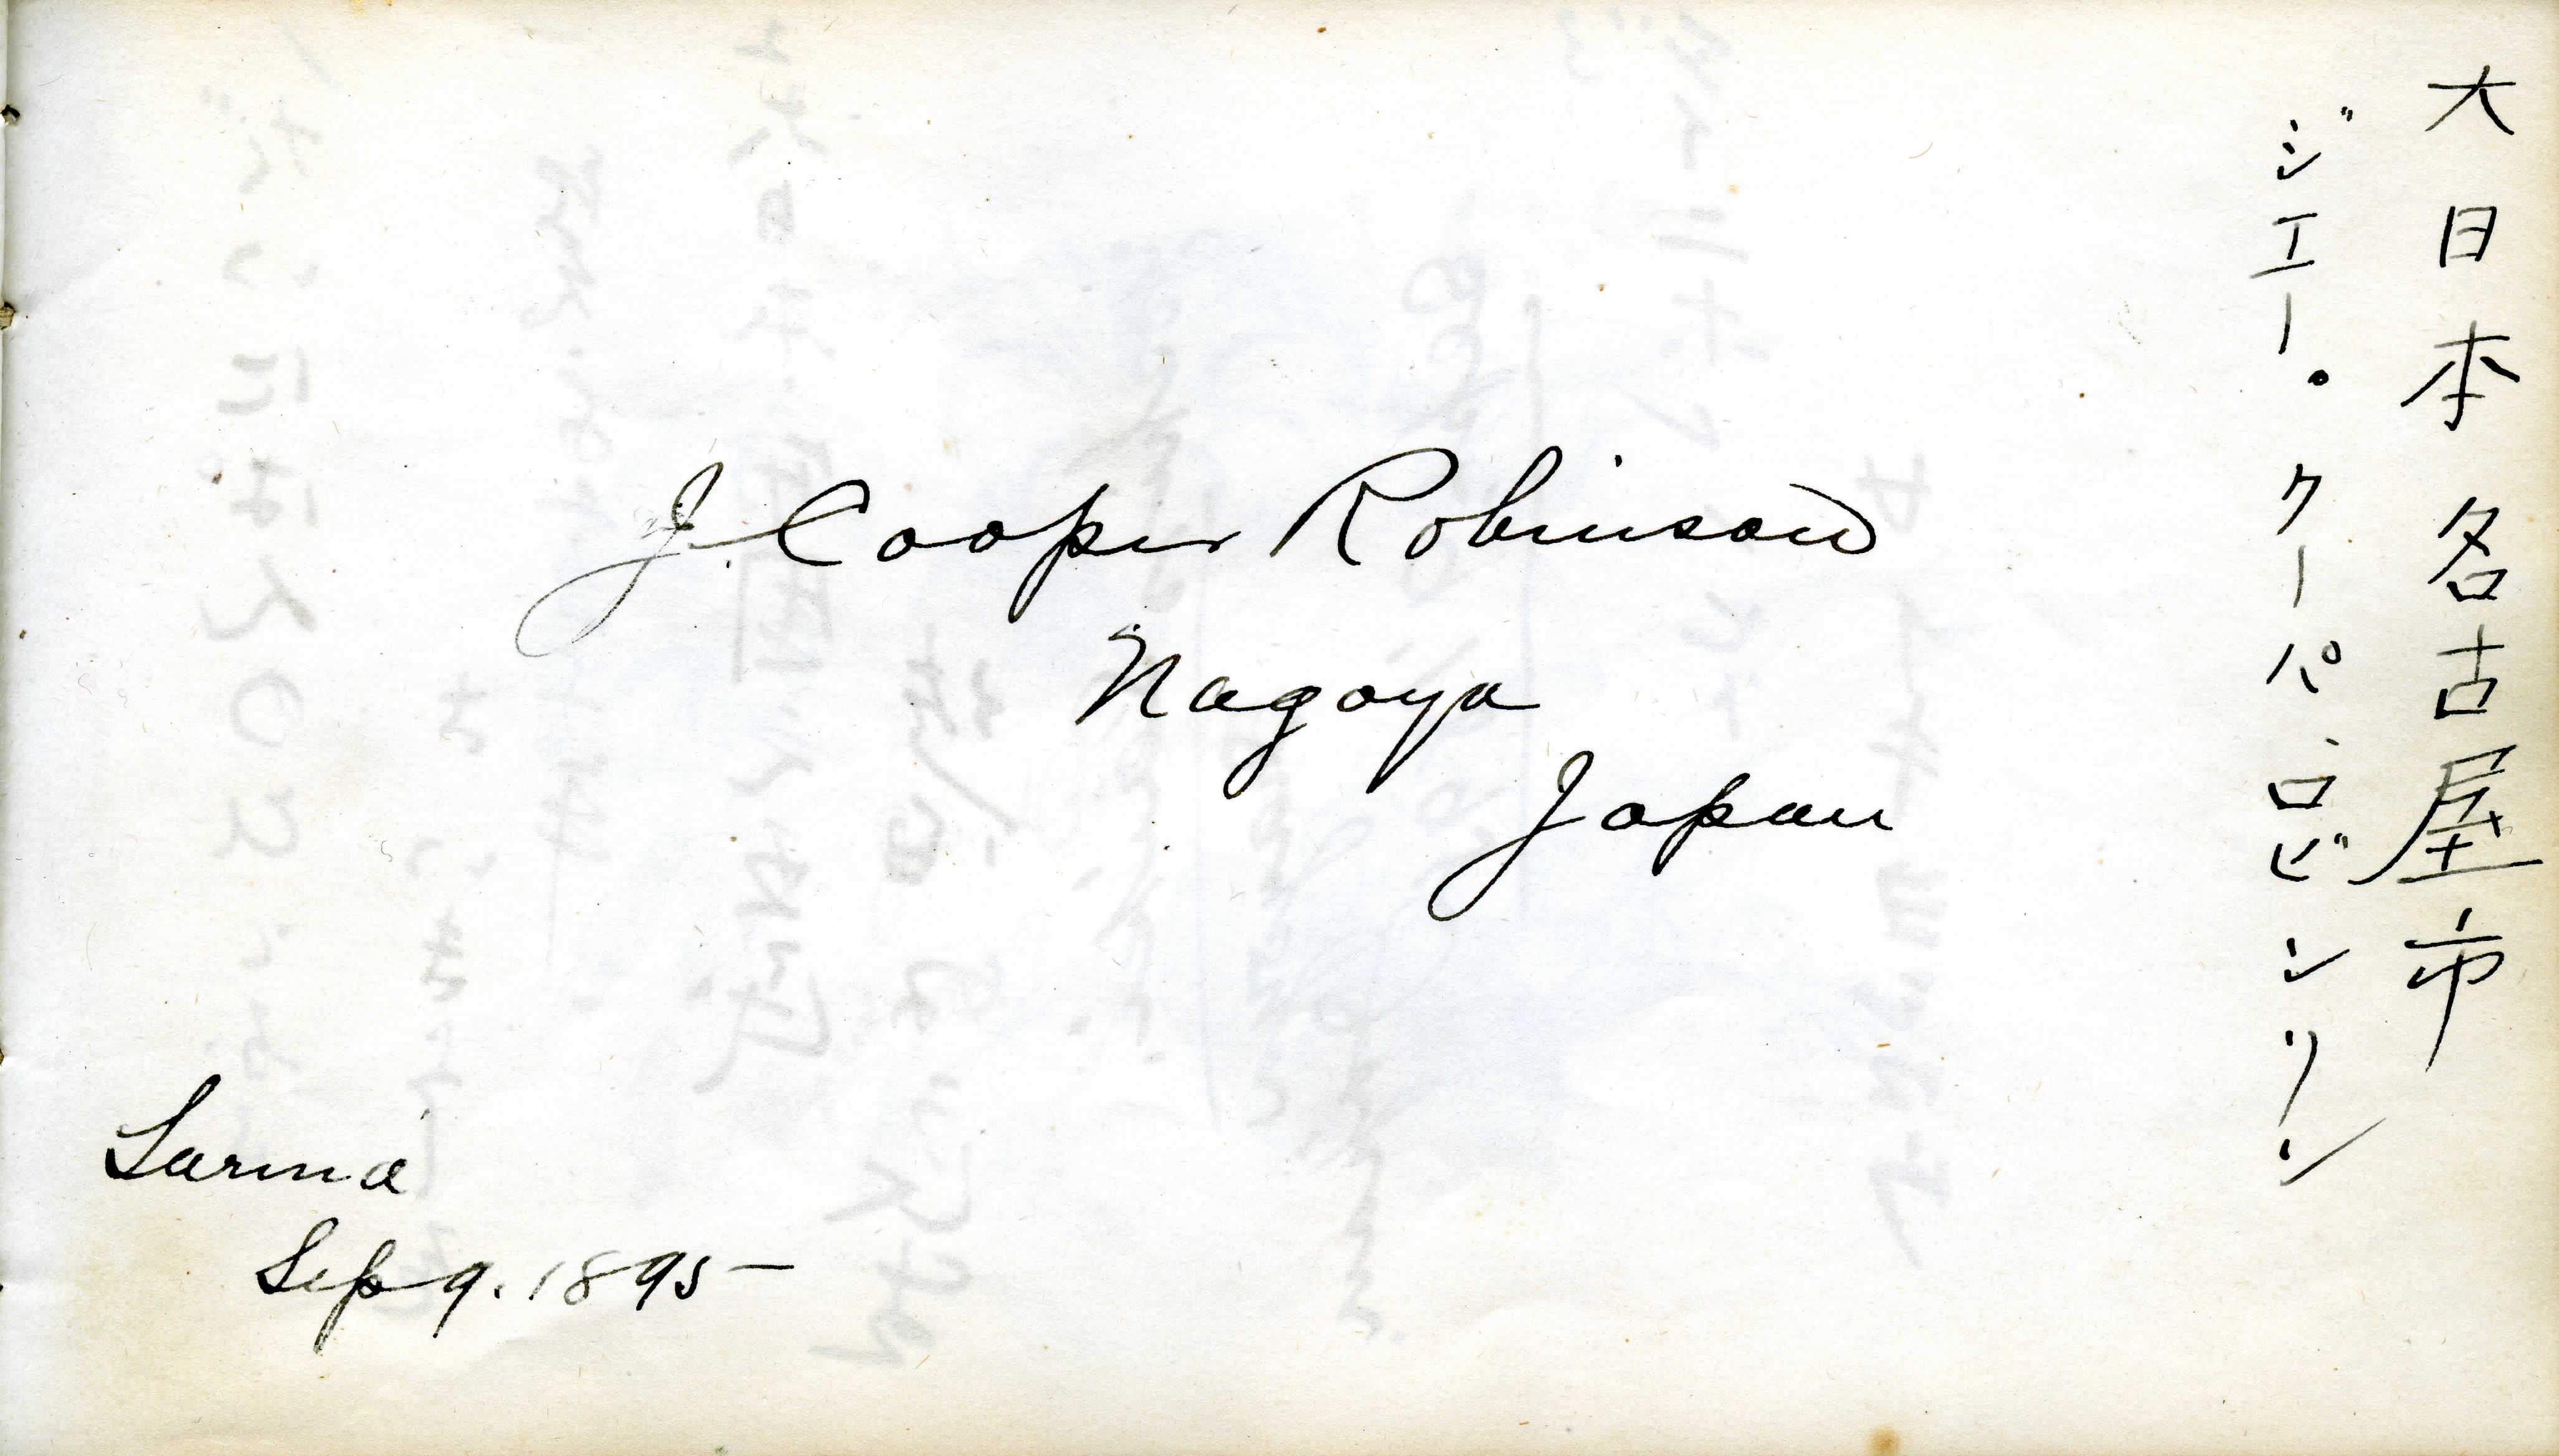 大日本名古屋市
ジエー.クーパ、ロビンソン
J. Cooper Robinson
Nagoya
Japan
Sarnia
Sep 9. 1895